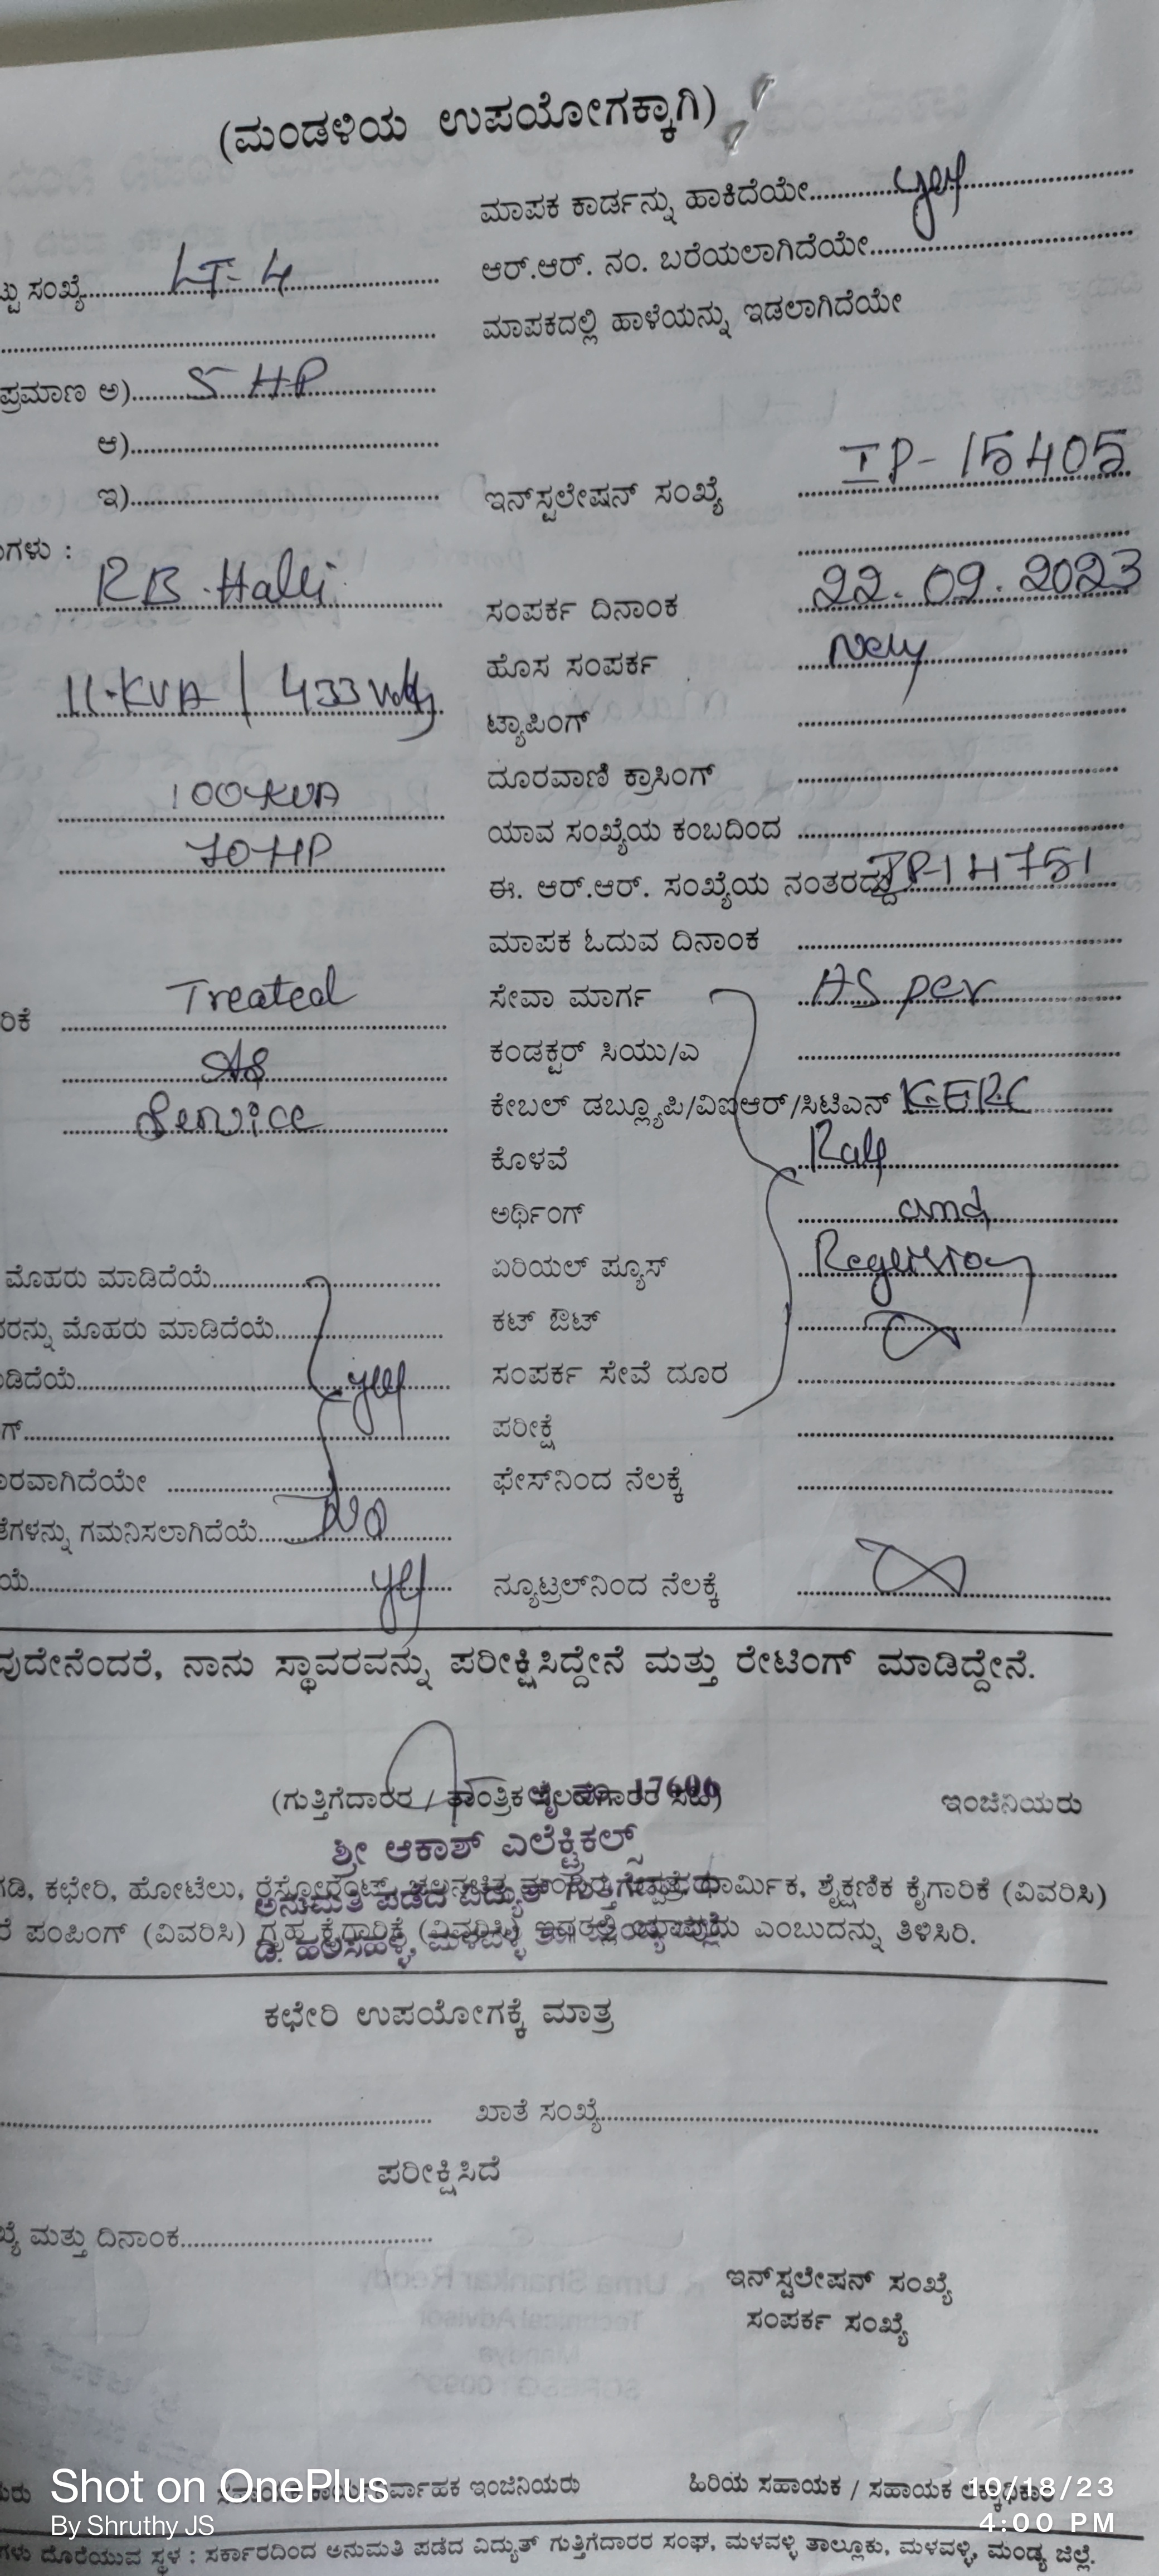 (ಮಂಡಳಿಯ ಉಪಯೋಗಕ್ಕಾಗಿ)
ಮಾಪಕ ಕಾರ್ಡನ್ನು ಹಾಕಿದೆಯೇ.......... yes
ಟ್ಟು ಸಂಖ್ಯೆ.......... LT-4
ಆರ್.ಆರ್. ನಂ. ಬರೆಯಲಾಗಿದೆಯೇ..........
ಮಾಪಕದಲ್ಲಿ ಹಾಳೆಯನ್ನು ಇಡಲಾಗಿದೆಯೇ
ಪ್ರಮಾಣ ಅ).......... 5 HP
ಆ)..........
ಇ)..........
ಇನ್‌ಸ್ಟಲೇಷನ್ ಸಂಖ್ಯೆ IP-15405
ಗಳು :
RB.Halli
ಸಂಪರ್ಕ ದಿನಾಂಕ 22.09.2023
ಹೊಸ ಸಂಪರ್ಕ New
11-KVA / 433 Volts
ಟ್ಯಾಪಿಂಗ್
ದೂರವಾಣಿ ಕ್ರಾಸಿಂಗ್
100-KVA
ಯಾವ ಸಂಖ್ಯೆಯ ಕಂಬದಿಂದ
70 HP
ಈ. ಆರ್.ಆರ್. ಸಂಖ್ಯೆಯ ನಂತರದ್ದು IP-14751
ಮಾಪಕ ಓದುವ ದಿನಾಂಕ
ರಿಕೆ Treated
ಸೇವಾ ಮಾರ್ಗ As per
As
ಕಂಡಕ್ಟರ್ ಸಿಯು/ಎ
Service
ಕೇಬಲ್ ಡಬ್ಲ್ಯೂಪಿ/ವಿಐಆರ್/ಸಿಟಿಎನ್ K.ERC
ಕೊಳವೆ
ಅರ್ಥಿಂಗ್ and
ಮೊಹರು ಮಾಡಿದೆಯೆ..........
ಏರಿಯಲ್ ಪ್ಯೂಸ್
ರನ್ನು ಮೊಹರು ಮಾಡಿದೆಯೆ..........
ಕಟ್ ಔಟ್
ಡಿದೆಯೆ.......... yes
ಸಂಪರ್ಕ ಸೇವೆ ದೂರ
ಗ್..........
ಪರೀಕ್ಷೆ
ರವಾಗಿದೆಯೇ ..........
ಫೇಸ್‌ನಿಂದ ನೆಲಕ್ಕೆ
ಗಳನ್ನು ಗಮನಿಸಲಾಗಿದೆಯೆ.......... No
ಯೆ.......... yes
ನ್ಯೂಟ್ರಲ್‌ನಿಂದ ನೆಲಕ್ಕೆ
ವುದೇನೆಂದರೆ, ನಾನು ಸ್ಥಾವರವನ್ನು ಪರೀಕ್ಷಿಸಿದ್ದೇನೆ ಮತ್ತು ರೇಟಿಂಗ್ ಮಾಡಿದ್ದೇನೆ.
(ಗುತ್ತಿಗೆದಾರರ / ತಾಂತ್ರಿಕ
ಇಂಜಿನಿಯರು
ಶ್ರೀ ಆಕಾಶ್ ಎಲೆಕ್ಟ್ರಿಕಲ್ಸ್
ಅನುಮತಿ ಪಡೆದ ವಿದ್ಯುತ್ ಗುತ್ತಿಗೆದಾರರು
ಗಡಿ, ಕಛೇರಿ, ಹೋಟೆಲು, ಧಾರ್ಮಿಕ, ಶೈಕ್ಷಣಿಕ ಕೈಗಾರಿಕೆ (ವಿವರಿಸಿ)
ರೆ ಪಂಪಿಂಗ್ (ವಿವರಿಸಿ) ಗೃಹ ಕೈಗಾರಿಕೆ (ವಿವರಿಸಿ) ಎಂಬುದನ್ನು ತಿಳಿಸಿರಿ.
ಕಛೇರಿ ಉಪಯೋಗಕ್ಕೆ ಮಾತ್ರ
ಖಾತೆ ಸಂಖ್ಯೆ..........
ಪರೀಕ್ಷಿಸಿದೆ
ಖ್ಯೆ ಮತ್ತು ದಿನಾಂಕ..........
ಇನ್‌ಸ್ಟಲೇಷನ್ ಸಂಖ್ಯೆ
ಸಂಪರ್ಕ ಸಂಖ್ಯೆ
ಇಂಜಿನಿಯರು
ಹಿರಿಯ ಸಹಾಯಕ / ಸಹಾಯಕ
Shot on OnePlus
By Shruthy JS
10/18/23
4:00 PM
ಗಳು ದೊರೆಯುವ ಸ್ಥಳ : ಸರ್ಕಾರದಿಂದ ಅನುಮತಿ ಪಡೆದ ವಿದ್ಯುತ್ ಗುತ್ತಿಗೆದಾರರ ಸಂಘ, ಮಳವಳ್ಳಿ ತಾಲ್ಲೂಕು, ಮಳವಳ್ಳಿ, ಮಂಡ್ಯ ಜಿಲ್ಲೆ.